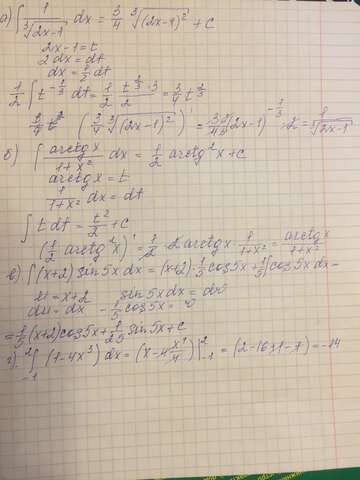 а) ∫ 1/∛(2x-1), dx = 3/4 ∛(2x-1)² + C
2x-1=t
2 dx = dt
dx = 1/2 dt
1/2 ∫ t^(-1/3) dt = 1/2 t^(2/3)·3/2 = 3/4 t^(2/3)
(3/4 ∛(2x-1)²)' = 3/4 · 2/3 (2x-1)^(-1/3) · 2 = 1/∛(2x-1)
б) ∫ arctgx/(1+x²) dx = 1/2 arctg²x + C
arctgx = t
1/(1+x²) dx = dt
∫ t dt = t²/2 + C
(1/2 arctg²x)' = 1/2 · 2 arctgx · 1/(1+x²) = arctgx/(1+x²)
в) ∫(x+2) sin5x dx = (x+2)·1/5 cos5x + 1/5 ∫cos5x dx =
u = x+2 sin5x dx = dv
du = dx -1/5 cos5x = v
= 1/5 (x+2) cos5x + 1/25 sin5x + C
г) ²∫₋₁ (1-4x³) dx = (x-4 x⁴/4) |²₋₁ = (2-16+1-1) = -14